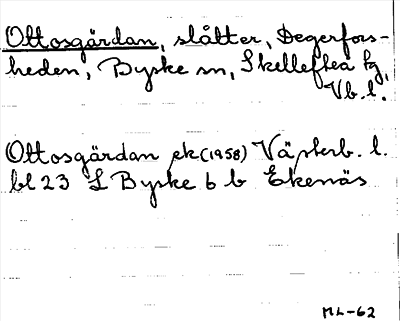 Ottosgärdan, slåtter, Degerfors-
heden, Byske sn, Skellefteå tg,
Vb. l.
Ottosgärdan ek (1958) Västerb. l.
bl 23 L Byske 6 b Ekenäs
ML-62